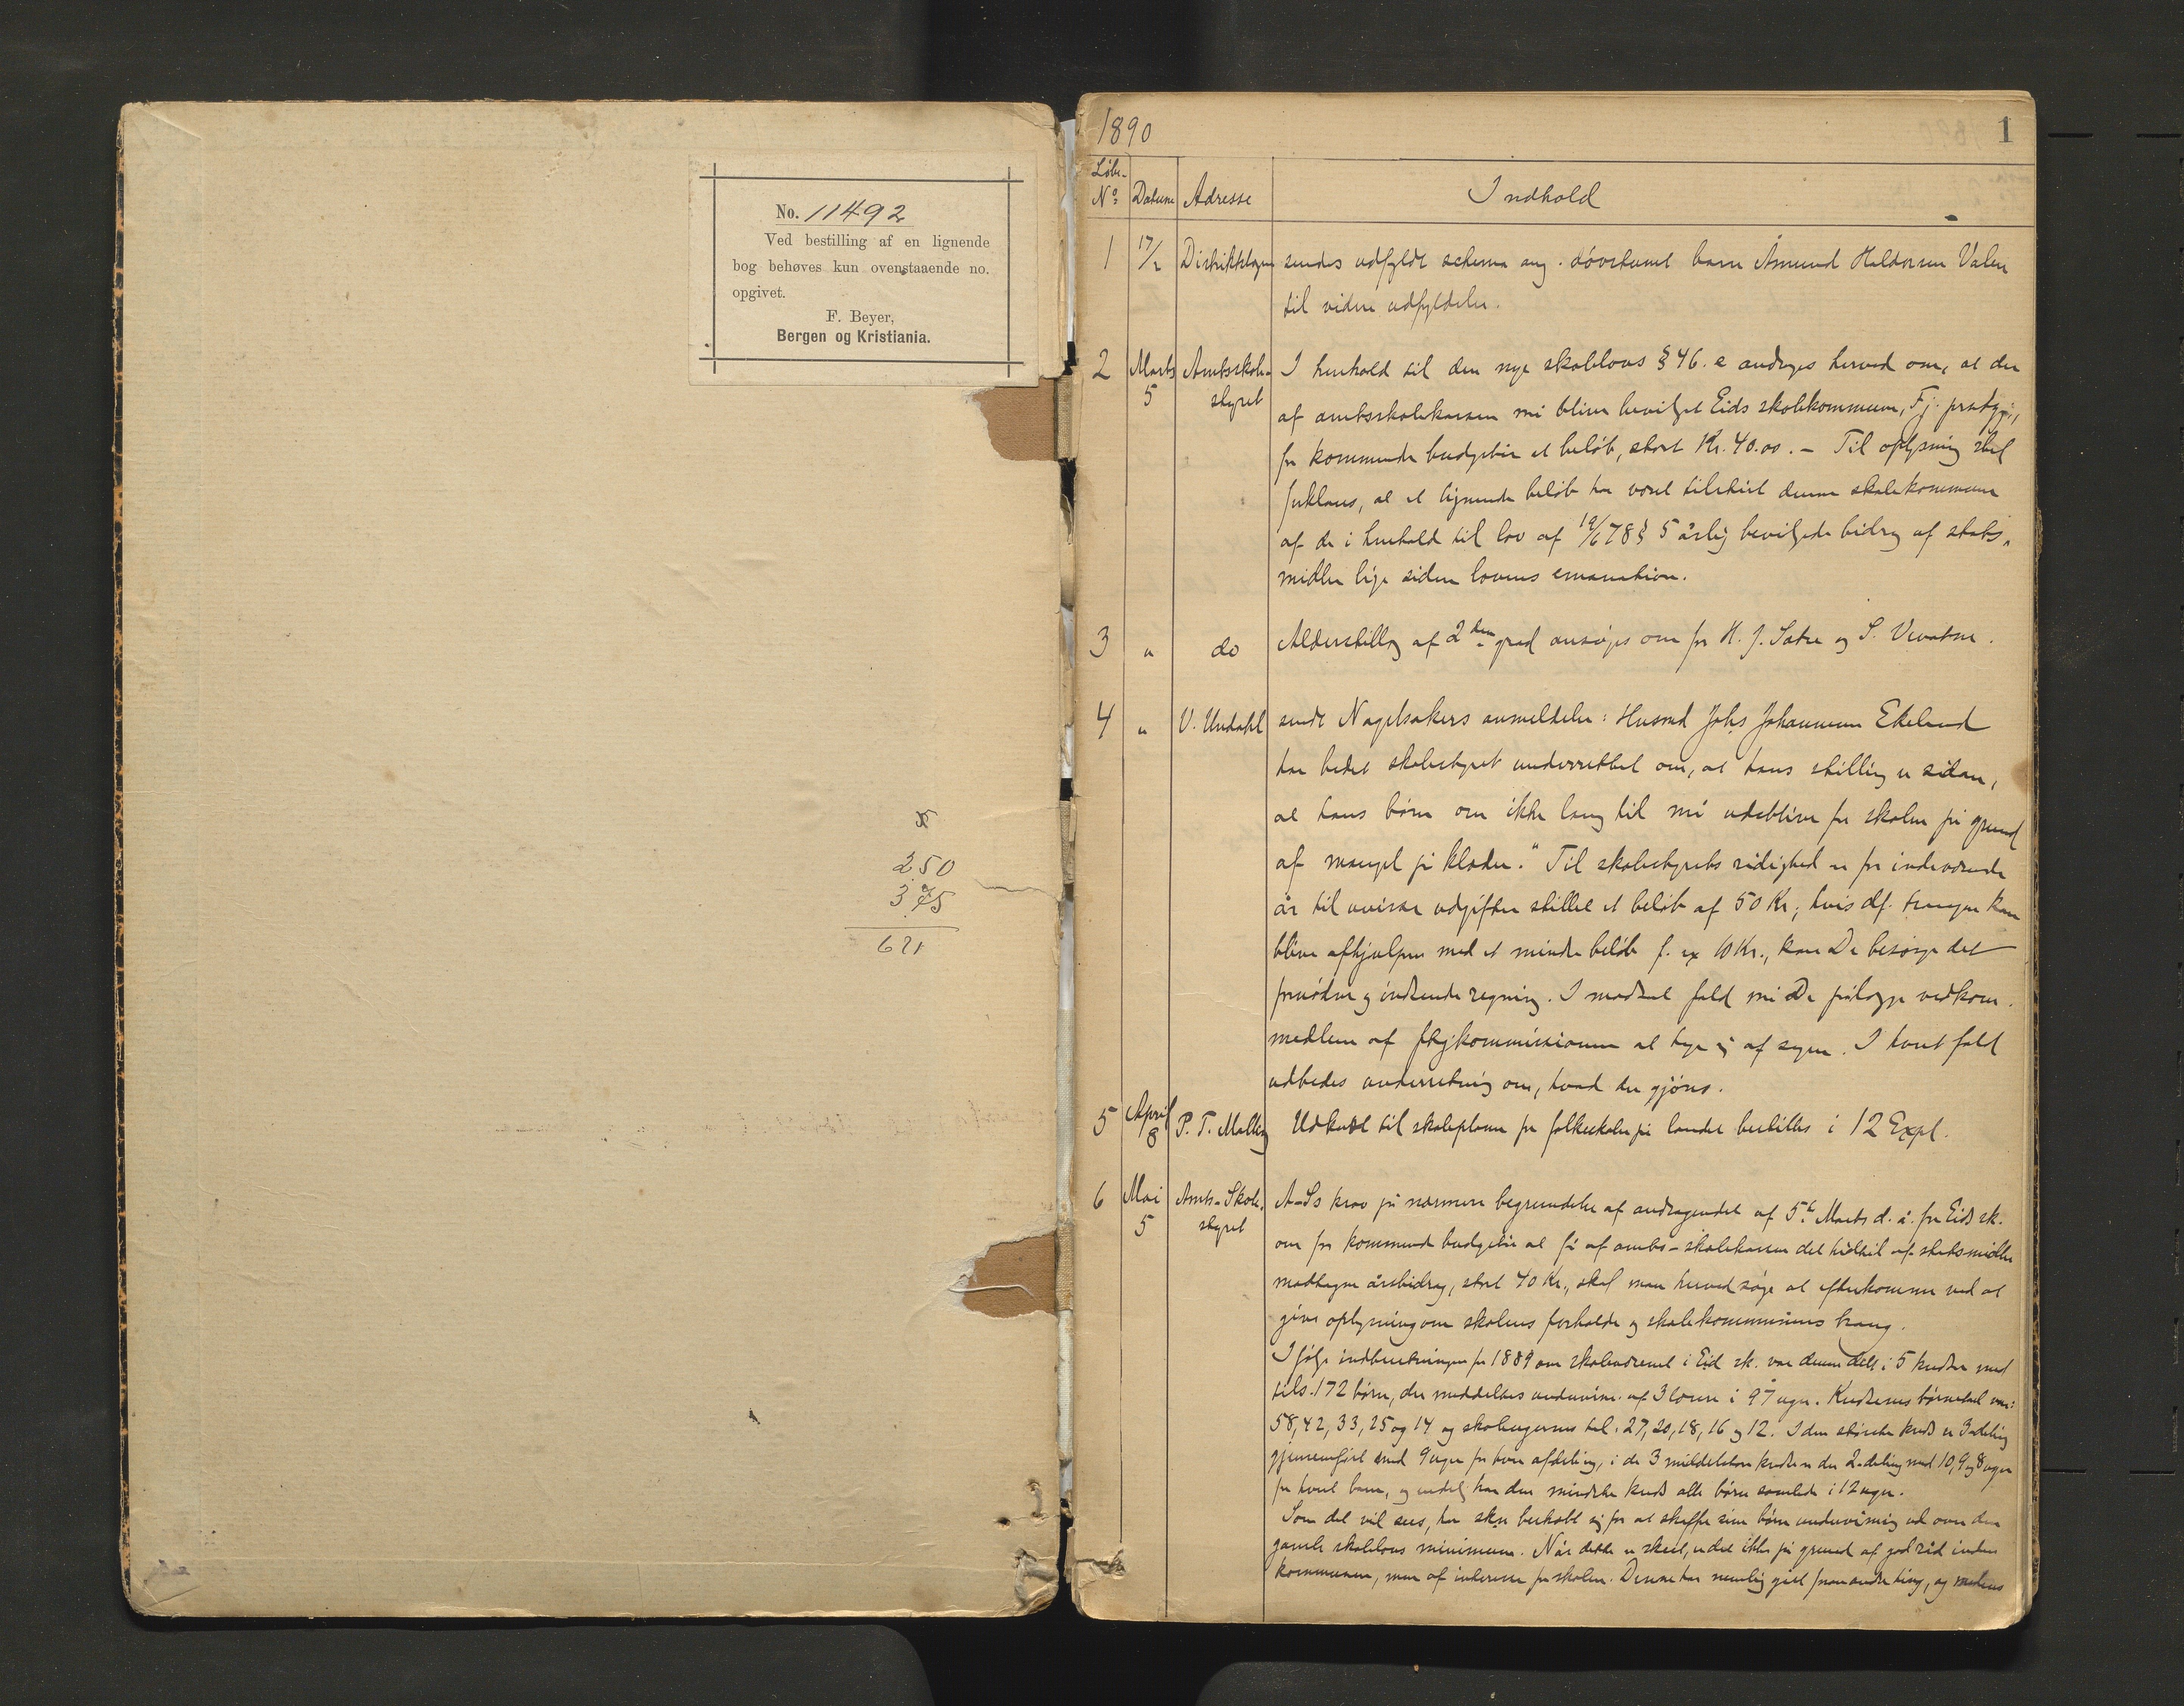 No. 11492
Ved bestilling af en lignende
bog behøves kun ovenstaaende no.
opgivet.
F. Beyer,
Bergen og Kristiania.
250
375
621
1890
1
Løbe-
No Datum Adresse Indhold
1 17/2 Distriktslægen sendes udfyldt schema ang. døvstumt barn Åmund Haldorsen Valen
til videre udfyldelse.
2 Marts 5 Amtsskole-
styret
I henhold til den nye skolelovs § 46. e andrages herved om, at der
af amtsskolekassen må blive bevilget Eids skolekommune, Fj. prstgj.,
for kommende budgetår et beløb, stort Kr. 40.00. – Til oplysning skal
forklares, at et lignende beløb har været tilstået denne skolekommune
af de i henhold til lov af 19/6 78 § 5 årlig bevilgede bidrag af stats-
midler lige siden lovens emanation.
3 " do Alderstillæg af 2den grad ansøges om for H. J. Sætre og S.
4 " V. Undahl sendt Nagelsakers anmeldelse: Husmd Johs Johannesen Ekeland
har bedet skolestyret underrettet om, at hans stilling er sådan,
at hans børn om ikke lang tid må udeblive fra skolen på grund
af mangel på klæder." Til skolestyrets rådighed er for indeværende
år til uvisse udgifter stillet et beløb af 50 Kr.; hvis df. trangen kan
blive afhjulpen med et mindre beløb f. ex 10 Kr., kan De besørge det
fornødne og indsende regning. I modsat fald må De pålægge vedkom.
medlem af ftgkommissionen at tage sig af sagen. I hvert fald
udbedes underretning om, hvad der gjøres.
5 April 8 P. T. Malling Udkast til skoleplaner for folkeskolen på landet bestilles i 12 Expl.
6 Mai 5 Amts-Skole-
styret
A-Ss krav på nærmere begrundelse af andragendet af 5te Marts d. å. fra Eids sk.
om for kommende budgetår at få af amts-skolekassen det hidtil af statsmidler
modtagne årsbidrag, stort 40 Kr., skal man herved søge at efterkomme ved at
give oplysning om skolens forholde og skolekommunens trang.
Ifølge indberetningen for 1889 om skolevæsenet i Eid sk. var denne delt i 5 kredse med
tils. 172 børn, der meddeltes undervisn. af 3 lærere i 97 uger. Kredsenes børnetal var:
58, 42, 33, 25 og 14 og skoleugernes tal: 27, 20, 18, 16 og 12. I den største kreds er 3-deling
gjennemført med 9 uger for hver afdeling, i de 3 middelstore kredse er der 2-deling med 10, 9 og 8 uger
for hvert barn, og endelig har den mindste kreds alle børn samlede i 12 uger.
Som det vil sees, har skn bekostet sig for at skaffe sine børn undervisning ud over den
gamle skolelovs minimum. Når dette er skeet, er det ikke på grund af god råd inden
kommunen, men af interesse for skolen. Denne har nemlig gået foran andre ting, og medens